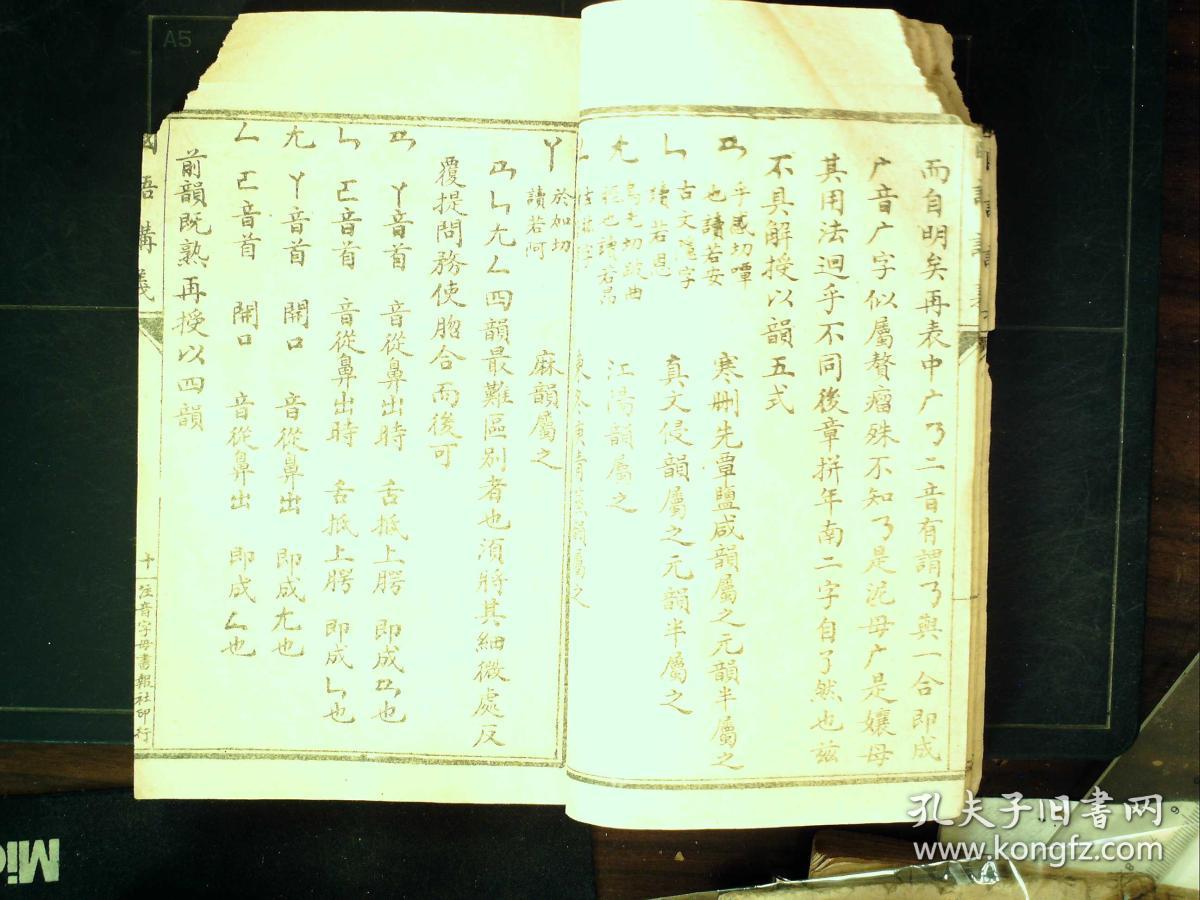 而自明矣再表中广ㄋ二音有謂ㄋ與一合即成
广音广字似屬贅瘤殊不知ㄋ是泥母广是孃母
其用法迥乎不同後章拼年南二字自了然也茲
不具解授以韻五式
ㄢ 乎感切嘾也讀若安 寒刪先覃鹽咸韻屬之元韻半屬之
ㄣ 古文隱字讀若恩 真文侵韻屬之元韻半屬之
ㄤ 烏光切跛曲脛也讀若昂 江陽韻屬之
ㄚ 於如切讀若阿 麻韻屬之
ㄢㄣㄤㄥ四韻最難區別者也須將其細微處反
覆提問務使脗合而後可
ㄢ ㄚ音首 音從鼻出時 舌抵上腭 即成ㄢ也
ㄣ ㄛ音首 音從鼻出時 舌抵上腭 即成ㄣ也
ㄤ ㄚ音首 開口 音從鼻出 即成ㄤ也
ㄥ ㄛ音首 開口 音從鼻出 即成ㄥ也
前韻既熟再授以四韻
國語講義
十一
注音字母書報社印行
A5
孔夫子旧书网
www.kongfz.com